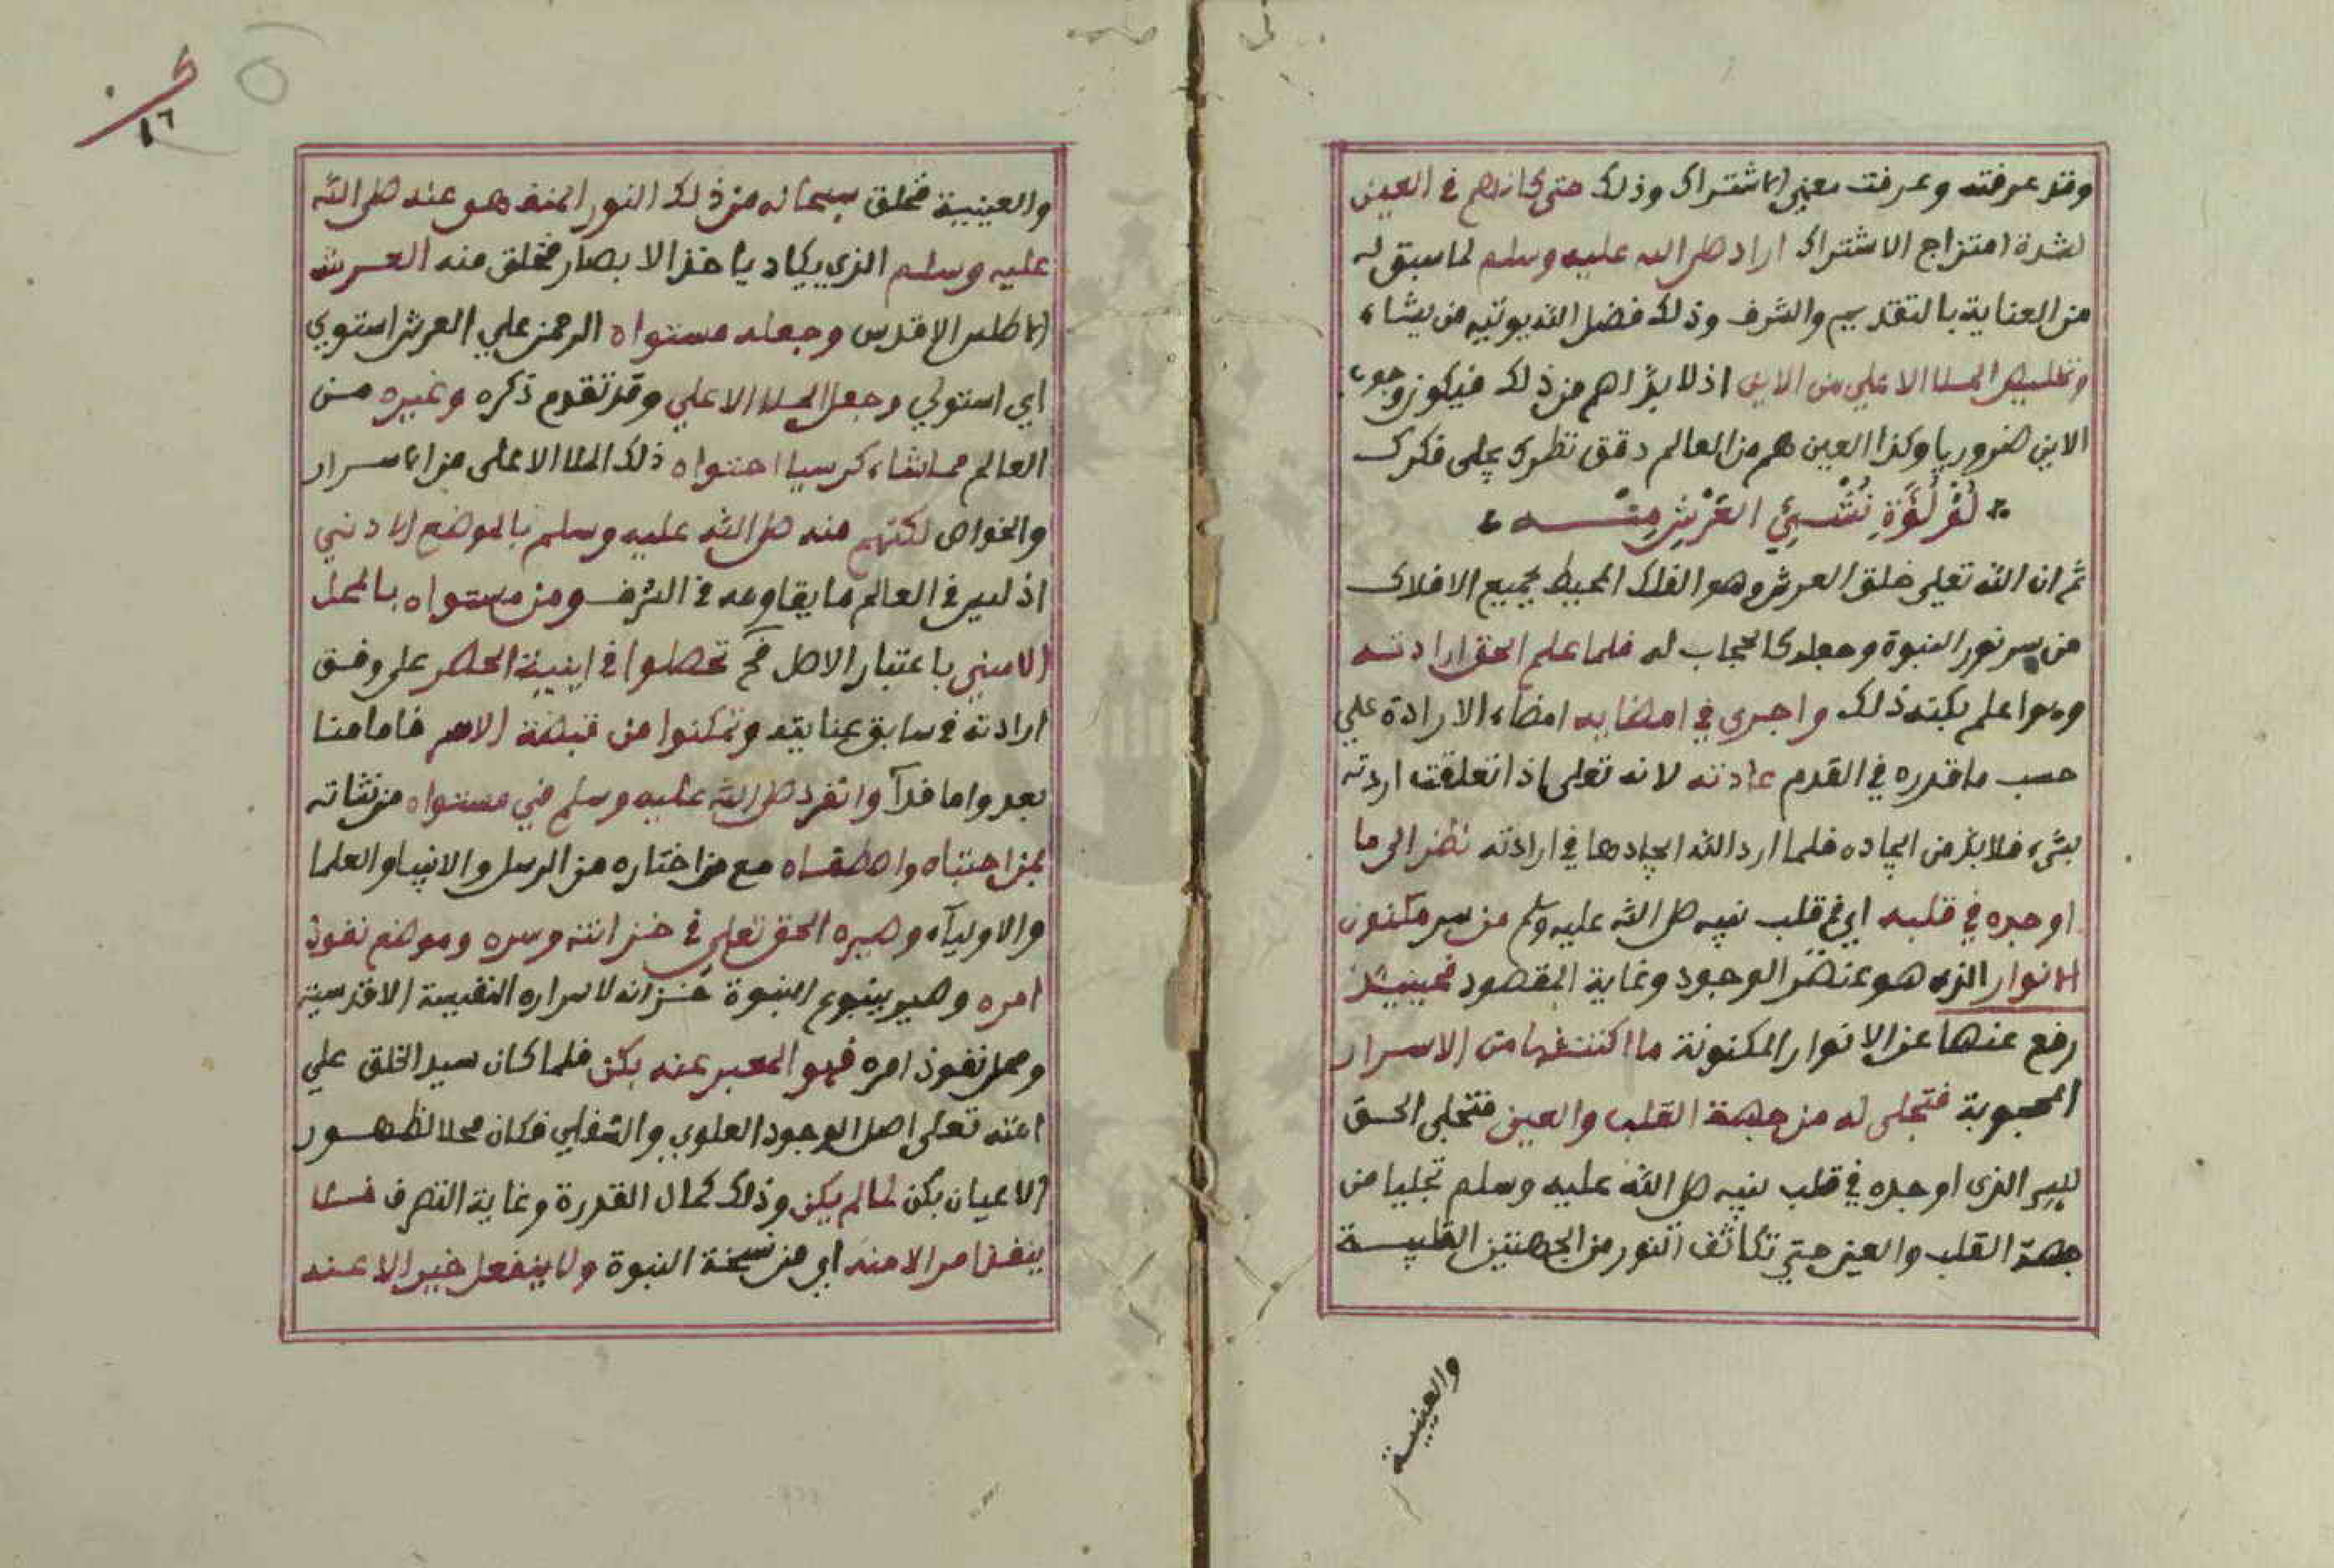 وقد عرفته وعرفت معنى الاشتراك وذلك حتى كانهم في العين
لشدة امتزاج الاشتراك اراد صلى الله عليه وسلم لما سبق له
من العناية بالتقديم والشرف وذلك فضل الله يوتيه من يشاء
الملا الاعلي من الاين اذ لا بد لهم من ذلك فيكون وجود
الاين ضروريا وكذا العين هم من العالم دقق نظرك بجلى فكرك
لؤلؤة نشئ العرش منه
ثم ان الله تعلى خلق العرش وهو الفلك المحيط بجميع الافلاك
من سر نور النبوة وجعله كالحجاب له فلما علم الحق ارادته
وهو اعلم بكنه ذلك واجرى في امضايه امضاء الارادة علي
حسب ما قدره في القدم عادته لانه تعلى اذا تعلقت اردته
بشيء فلا بد من ايجاده فلما ارد الله ايجادها في ارادته نظر الى ما
اوجده في قلبه اي في قلب نبيه صلى الله عليه وسلم من سر مكنون
الانوار الذي هو عنصر الوجود وغاية المقصود فحينيذ
رفع عنها عن الانوار المكنونة ما اكتنفها من الاسرار
المحبوبة فتجلى له من جهة القلب والعين فتجلى الحق
للسر الذي اوجده في قلب نبيه صلى الله عليه وسلم تجليا من
جهة القلب والعين حتي تكاثف النور من الجهتين القلبية
والعينية
١٦
والعينية فخلق سبحانه من ذلك النور المنفهق عنه صلى الله
عليه وسلم الذي يكاد ياخذ الابصار فخلق منه العرش
الاطلس الاقدس وجعله مستواه الرحمن علي العرش استوي
اي استولي وجعل الملا الاعلي وقد تقدم ذكره وغيره من
العالم مما شاء كرسيا احتواه ذلك الملا الاعلى من الاسرار
والخواص لكنهم منه صلى الله عليه وسلم بالموضع الادني
اذ ليس في العالم ما يقاومه في الشرف ومن مستواه بالمحل
الاسني باعتبار الاصل فهم تحصلوا في اينية الحصر على وفق
ارادته في سابق عنايته وتمكنوا من قبضة الامر فاما منا
بعد واما فدآ وانفرد صلى الله عليه وسلم في مستواه من نشاته
بمن اجتباه واصطفاه مع من اختاره من الرسل والانبيا والعلما
والاوليآء وصيره الحق تعلي في خزانته وسره وموضع نفوذ
امره وصير ينبوع النبوة خزانه لاسراره النفيسة الاقدسية
ومحل نفوذ امره فهو المعبر عنه بكن فلما كان سيد الخلق علي
الله تعلى اصل الوجود العلوي والسفلي فكان محلا لظهور
الاعيان بكن لما لم يكن وذلك كمال القدرة وغاية التصرف فلا
ينفذ امر الا منه اي من نسخة النبوة ولا ينفعل خير الا عنه